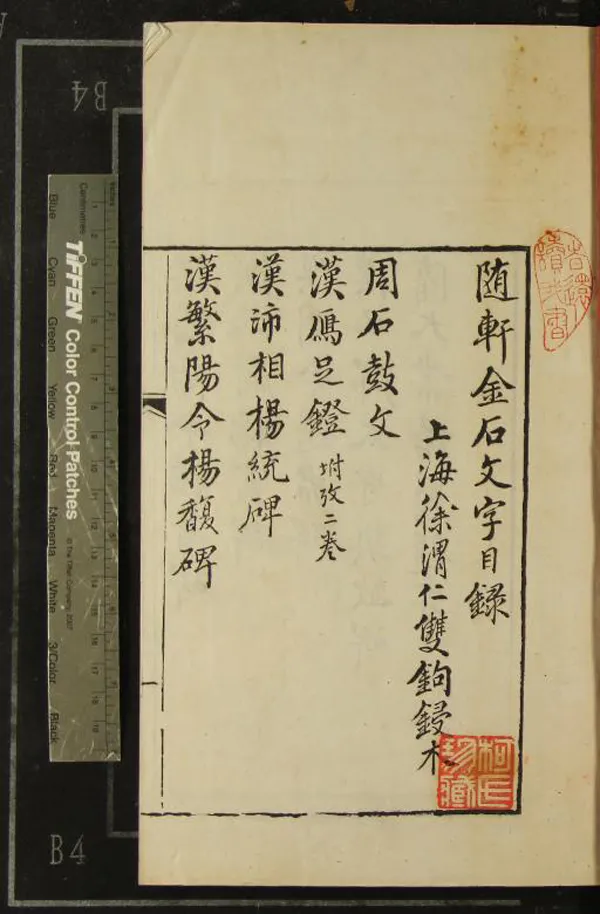 随軒金石文字目錄
上海徐渭仁雙鉤鋟木
周石鼓文
漢鴈足鐙 坿攷二卷
漢沛相楊統碑
漢繁陽令楊馥碑
柯氏珍藏
B4
B4
Inches
Centimetres
TIFFEN Color Control Patches
© The Tiffen Company, 2007
Blue
Cyan
Green
Yellow
Red
Magenta
White
3/Color
Black